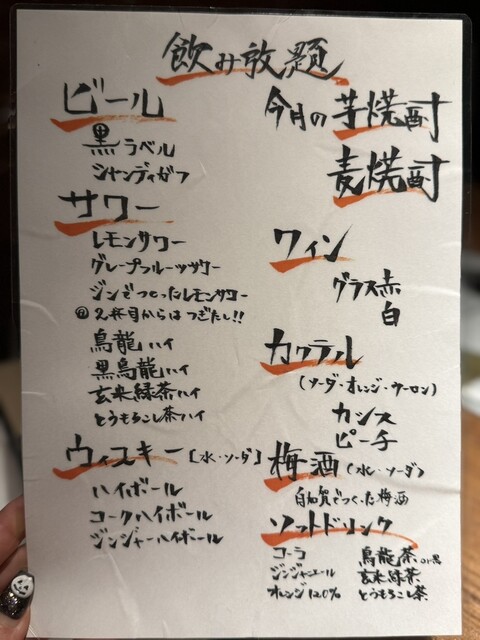 飲み放題
ビール
黒ラベル
シャンディガフ
サワー
レモンサワー
グレープフルーツサワー
ジンでつくったレモンサワー
2杯目からはつぎたし!!
烏龍ハイ
黒烏龍ハイ
玄米緑茶ハイ
とうもろこし茶ハイ
ウィスキー[水・ソーダ]
ハイボール
コークハイボール
ジンジャーハイボール
今月の芋焼酎
麦焼酎
ワイン
グラス赤
白
カクテル
(ソーダ・オレンジ・ウーロン)
カシス
ピーチ
梅酒(水・ソーダ)
白加賀でつくった梅酒
ソフトドリンク
コーラ
ジンジャエール
オレンジ120%
烏龍茶or黒
玄米緑茶
とうもろこし茶